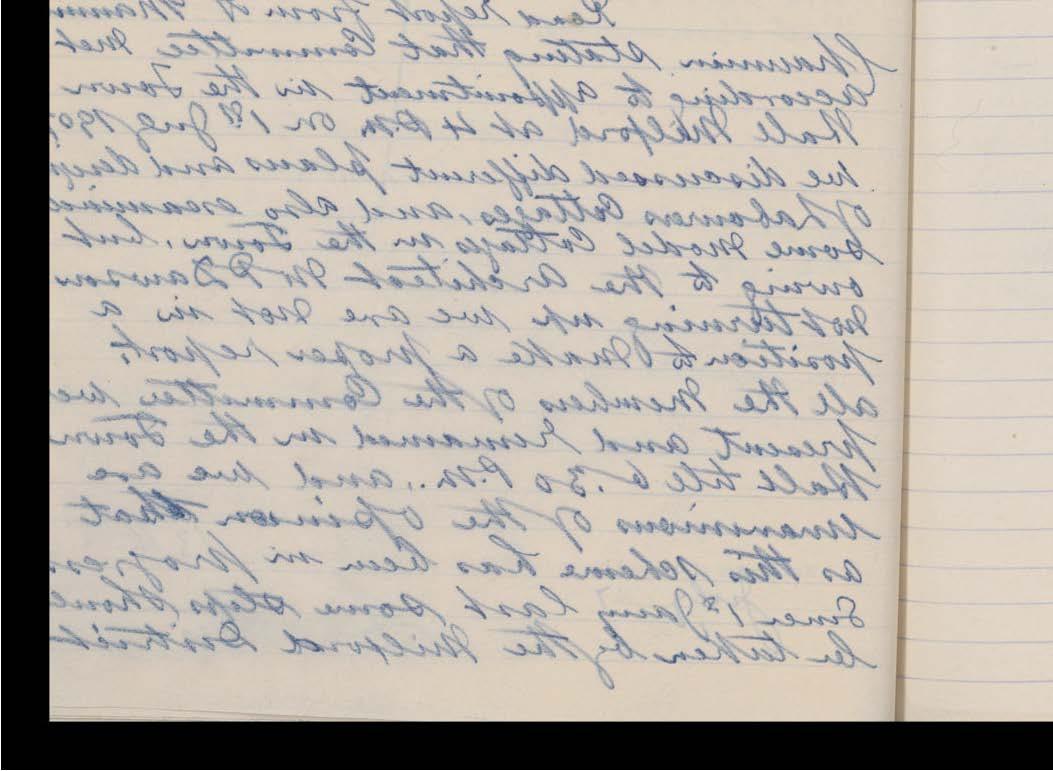 Read report from
Chairman stating that Committee met
according to appointment in the Town
Hall Milford at 4 P.M. on 1st
we discussed different plans and
of Labourers Cottages, and also examined
some Model Cottages in the Town, but
owing to the Architect Mr Dawson
not turning up we are not in a
position to make a proper report,
all the Members of the Committee we
present and remained in the Town
Hall till 6.30 P.M., and we are
unanimous of the opinion that
as this scheme has been in progress
since 1st Jany last some steps
be taken by the Milford District